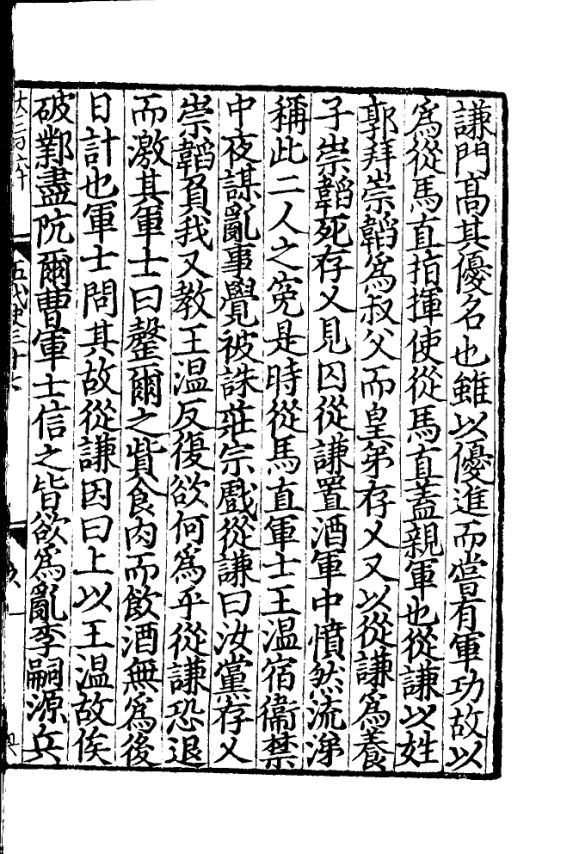 謙門髙其優名也雖以優進而嘗有軍功故以
爲從馬直指揮使從馬直蓋親軍也從謙以姓
郭拜崇韜爲叔父而皇弟存乂又以從謙爲養
子崇韜死存乂見囚從謙置酒軍中憤然流涕
稱此二人之寃是時從馬直軍士王温宿衞禁
中夜謀亂事覺被誅莊宗戲從謙曰汝黨存乂
崇韜負我又教王温反復欲何爲乎從謙恐退
而激其軍士曰罄爾之貲食肉而飲酒無爲後
日計也軍士問其故從謙因曰上以王温故俟
破鄴盡阬爾曹軍士信之皆欲爲亂李嗣源兵
五代史三十七